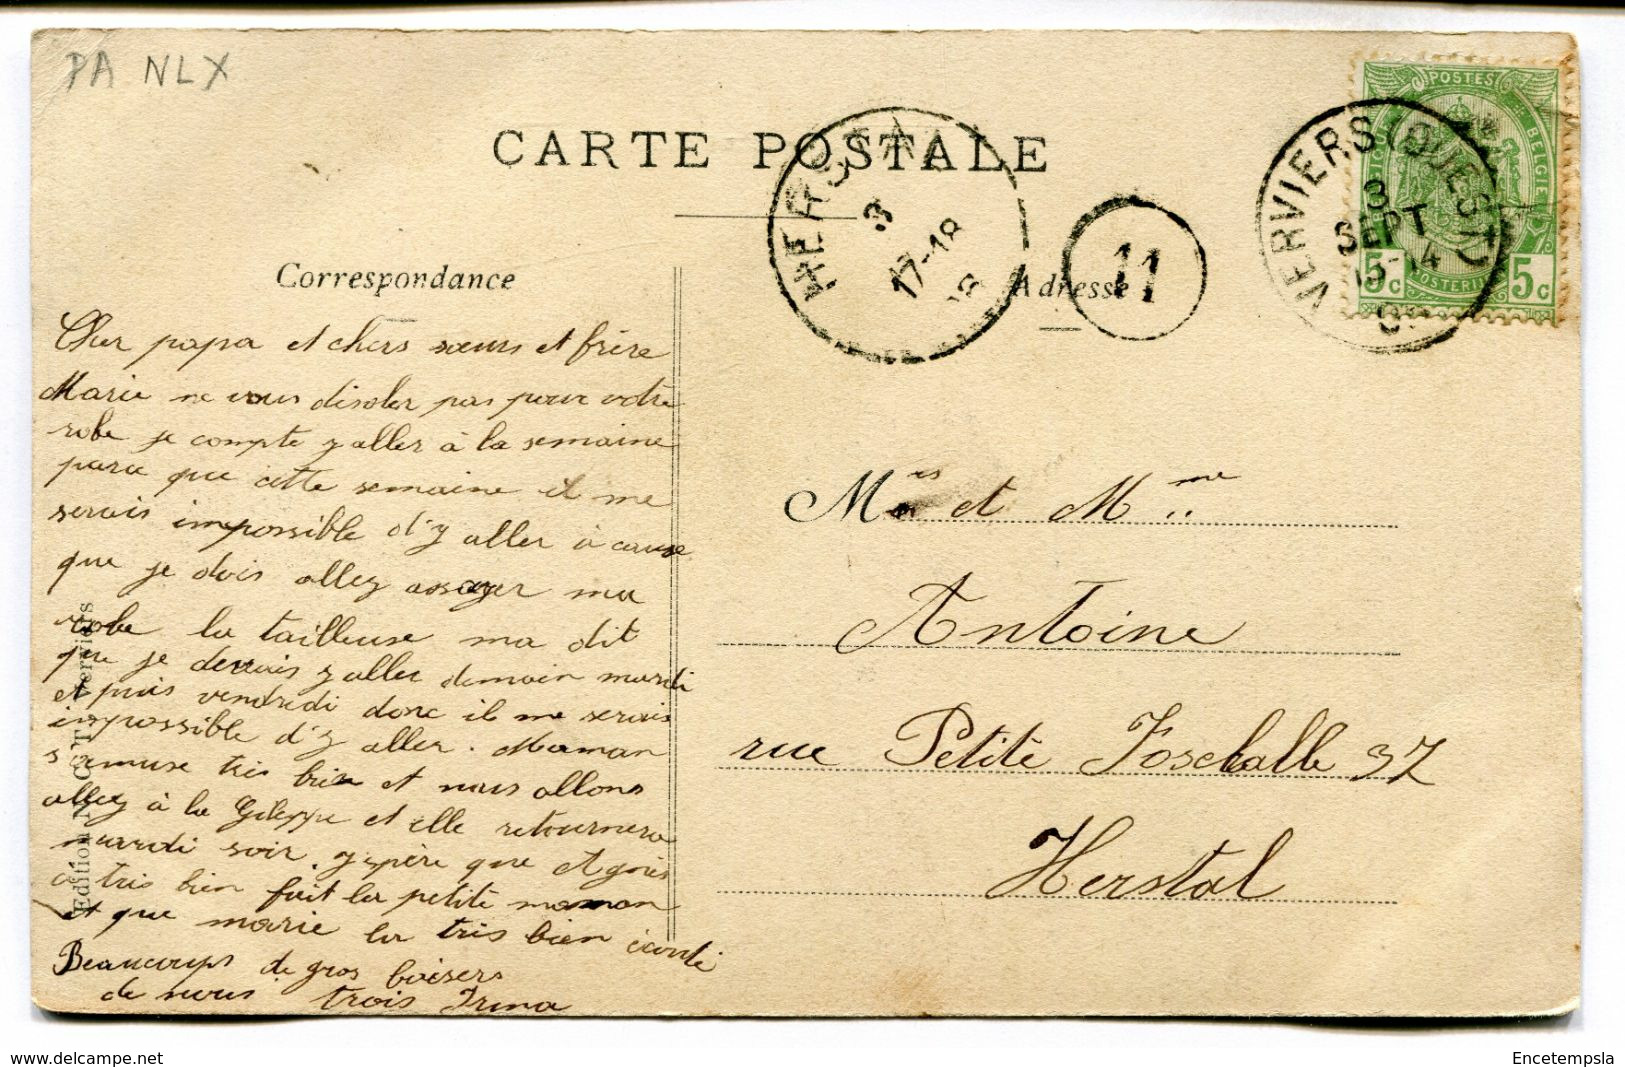 PA NLX
CARTE POSTALE
HERSTAL
3
17-18
08
11
VERVIERS (OUEST)
3
SEPT
13-14
POSTES
BELGIE
POSTERIJEN
5c 5c
Correspondance
Adresse
Cher papa et chers sœurs et frère
Marie ne vous disoler pas pour votre
robe je compte y aller à la semaine
parce que cette semaine il me
serais impossible d'y aller à cause
que je dois allez assayer ma
robe la tailleuse ma dit
que je devrais y aller demain mardi
et puis vendredi donc il me serais
impossible d'y aller. Maman
s'amuse tris bien et nous allons
allez à la Gileppe et elle retournera
mardi soir. j'espère que Agnès
a tris bien fait la petite maman
et que marie la tris bien écouté
Beaucoups de gros baisers
de nous trois Irma
Edition N. C. T. Verviers
Mrs et Mme
Antoine
rue Petite Foscballe 37
Herstal
Encetempsla